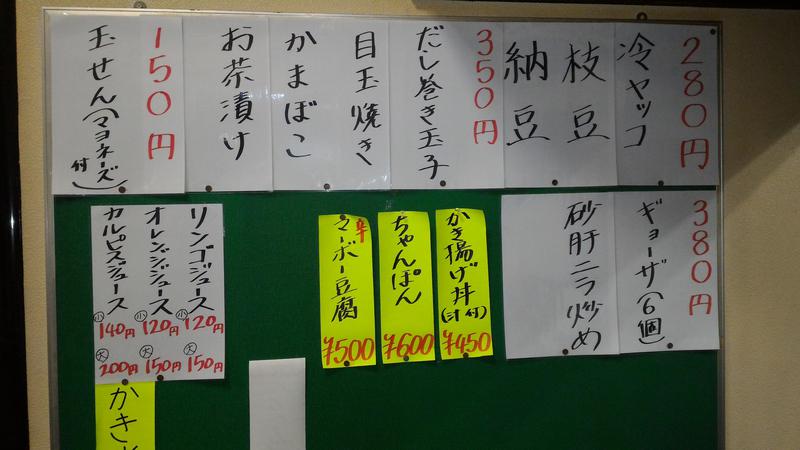 280円
冷ヤッコ
枝豆
納豆
350円
だし巻き玉子
目玉焼き
かまぼこ
お茶漬け
150円
玉せん(マヨネーズ付)
380円
ギョーザ(6個)
砂肝ニラ炒め
かき揚げ丼(汁付)
¥450
ちゃんぽん
¥600
辛
マーボー豆腐
¥500
リンゴジュース
小120円
大150円
オレンジジュース
小120円
大150円
カルピスジュース
小140円
大200円
かき